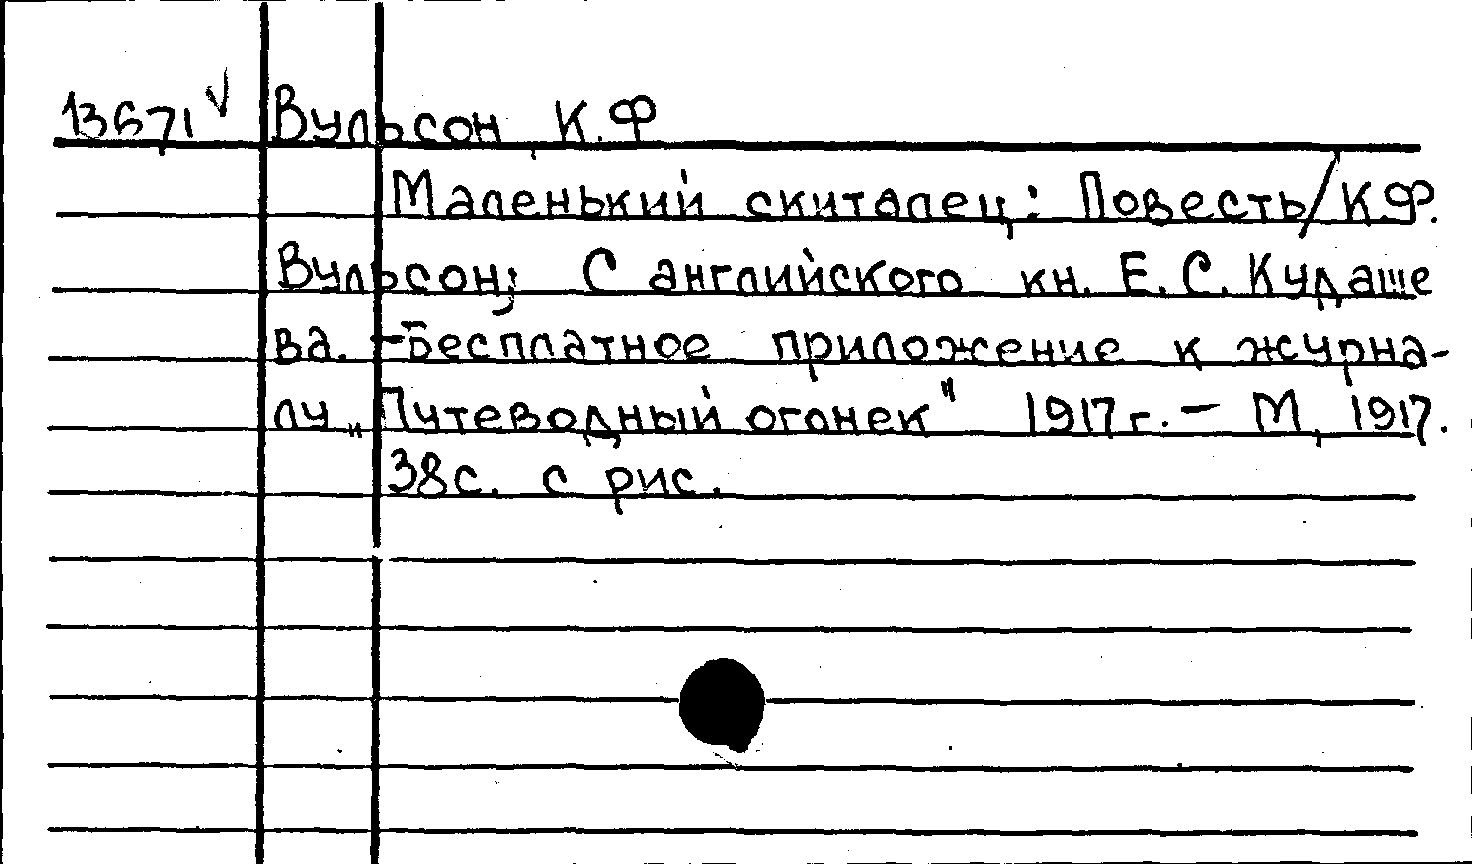 13671 V Вульсон, К.Ф
Маленький скиталец: Повесть/К.Ф.
Вульсон; С английского кн. Е.С. Кудаше
ва. -Бесплатное приложение к журна-
лу „Путеводный огонек" 1917г. - М, 1917.
38с. с рис.